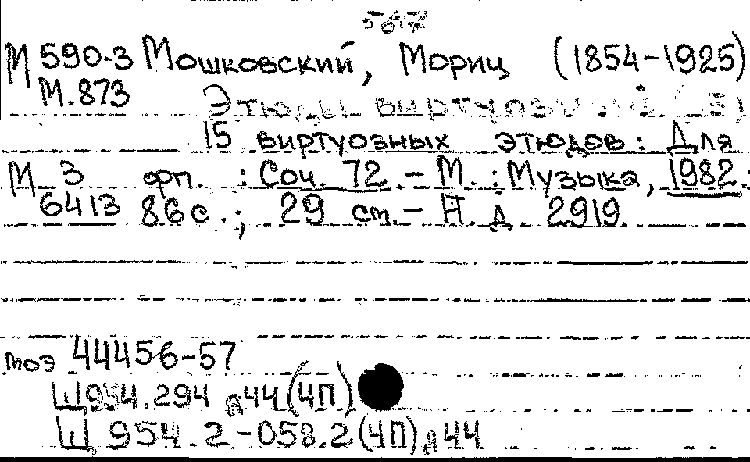 567
М 590-3 Мошковский, Мориц (1854-1925)
М.873 Этюды виртуозные
15 виртуозных этюдов: Для
М 3 фп. : Соч. 72. - М. : Музыка, 1982.
6413 86 с. ; 29 см. - Н. д. 2919.
моэ 44456-57
Щ954.294 я44(4П)
Щ 954.2-058.2(4П)я44